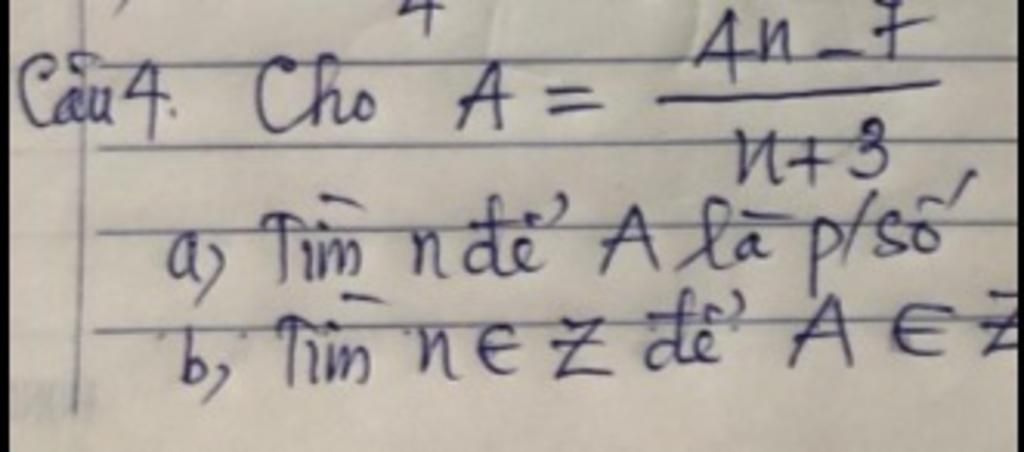 4
Câu 4. Cho A = \frac{4n - 7}{n + 3}
a, Tìm n để A là p/số
b, Tìm n ∈ Z để A ∈ Z